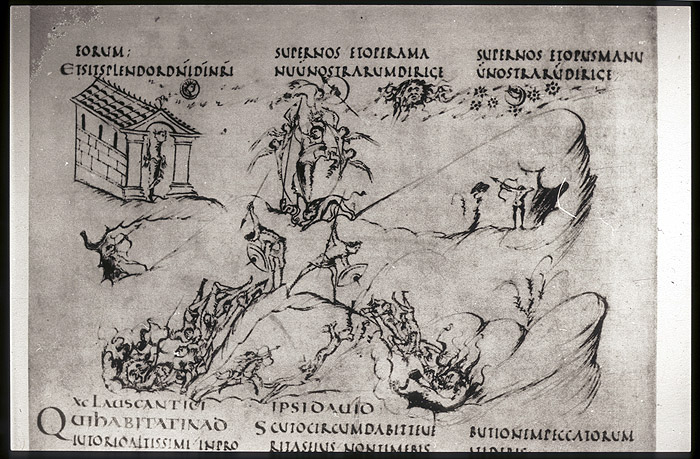 EORUM:
ETSITSPLENDORDNĪDĪNRĪ
SUPERNOS ETOPERAMA
NUŪNOSTRARUMDIRIGE
SUPERNOS ETOPUSMANU
ŪNOSTRARŪDIRIGE
XC LAUSCANTICI IPSIDAUID
QUIHABITATINAD
IUTORIOALTISSIMI INPRO
SCUTOCIRCUMDABITTEUE
RITASEIUS NONTIMEBIS
BUTIONEMPECCATORUM
UIDEBIS